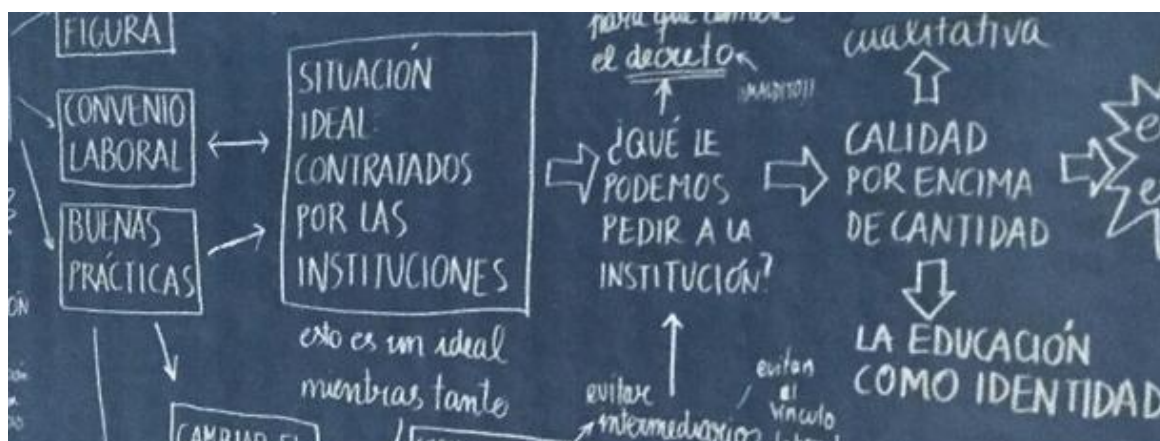 FIGURA
CONVENIO
LABORAL
BUENAS
PRÁCTICAS
SITUACIÓN
IDEAL:
CONTRATADOS
POR LAS
INSTITUCIONES
esto es un ideal
mientras tanto
para que cambie
el decreto
¡¡MALDITO!!
¿QUÉ LE
PODEMOS
PEDIR A LA
INSTITUCIÓN?
evitar
intermediarios
evitan
el
vínculo
cualitativa
CALIDAD
POR ENCIMA
DE CANTIDAD
LA EDUCACIÓN
COMO IDENTIDAD
CAMBIAR EL